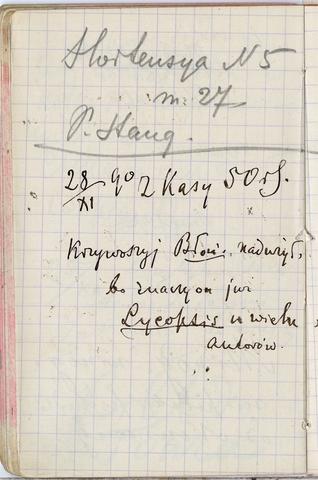 Hortensya N 5
m. 27
P. Hang.
28/XI 90 z Kasy 50 rS.
Krzywoszyj Błoń. nadwyż,
bo znaczy on już
Lycopsis u wielu
autorów.